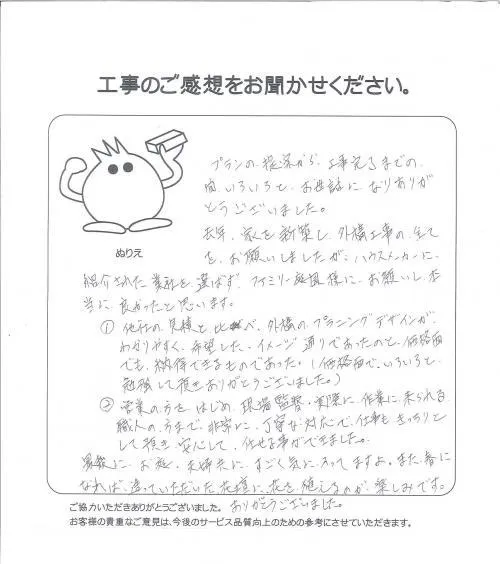 工事のご感想をお聞かせください。
プランの提案から、工事完了までの
間、いろいろと、お世話に、なりありが
とうございました。
去年、家を新築し、外構工事の全て
を、お願いしましたが、ハウスメーカーに、
ぬりえ
紹介された業社を選ばず、ファミリー庭園様に、お願いし本
当に良かったと思います。
① 他社の見積と比べ、外構のプランニングデザインが、
わかりやすく、希望した、イメージ通りであったのと、価格面
でも、納得できるものであった。(価格面で、いろいろと、
勉強して頂きありがとうございました。)
② 営業の方をはじめ、現場監督・実際に作業に来られる
職人の方まで、非常に、丁寧な対応で、仕事もきっちりと
して頂き、安心して、任せる事ができました。
最後に、お庭、夫婦共に、すごく気に入ってますよ。また、春に
なれば、造っていただいた花壇に、花を植えるのが、楽しみです。
ありがとうございました。
ご協力いただきありがとうございました。
お客様の貴重なご意見は、今後のサービス品質向上のための参考にさせていただきます。